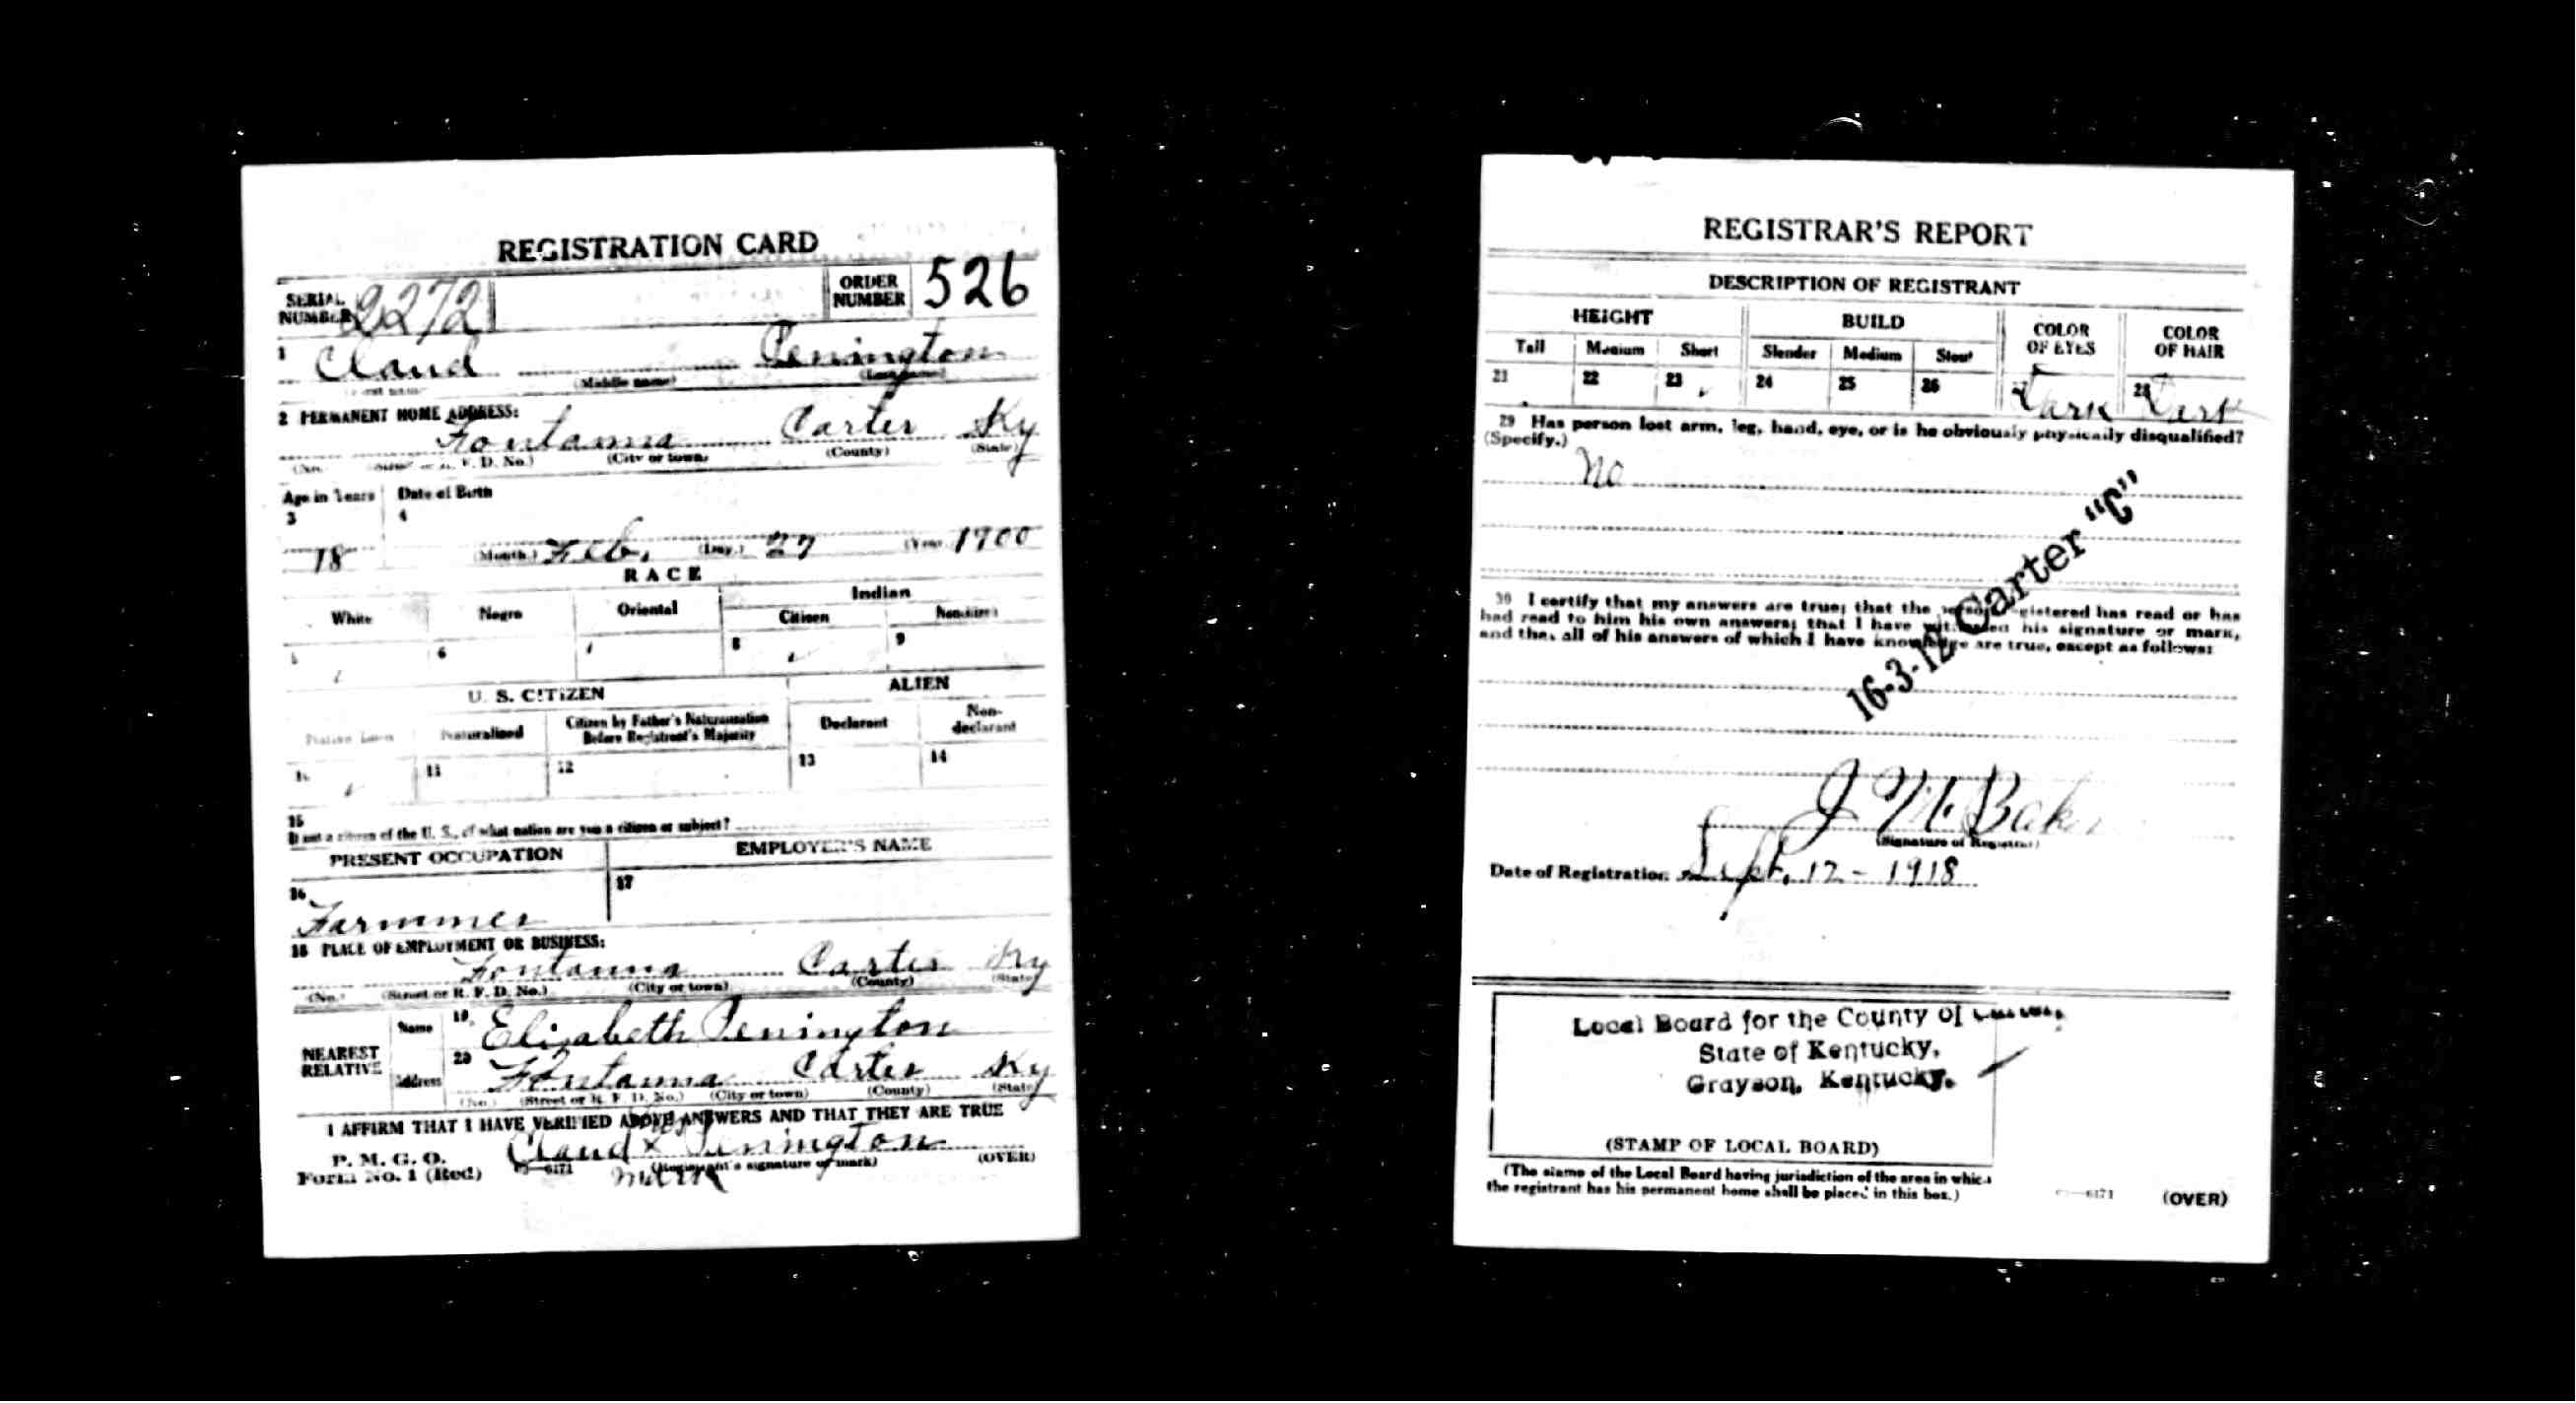 REGISTRATION CARD
SERIAL NUMBER 2272 ORDER NUMBER 526
1 Claud Penington
(Middle name) (Last name)
2 PERMANENT HOME ADDRESS:
Fontanna Carter Ky
(No. (Street or R. F. D. No.) (City or town) (County) (State)
Age in Years Date of Birth
3 4
18 (Month.) Feb. (Day.) 27 (Year 1900
RACE
White Negro Oriental Indian
Citizen Noncitizen
5 6 7 8 9
U. S. CITIZEN ALIEN
Native Born Naturalized Citizen by Father's Naturalization Before Registrant's Majority Declarant Non-declarant
10 11 12 13 14
15
If not a citizen of the U. S., of what nation are you a citizen or subject?
PRESENT OCCUPATION EMPLOYER'S NAME
16 17
Farmmer
18 PLACE OF EMPLOYMENT OR BUSINESS:
Fontanna Carter Ky
(No. (Street or R. F. D. No.) (City or town) (County) (State)
NEAREST RELATIVE
Name 19 Elizabeth Penington
Address 20 Fontanna Carter Ky
(No.) (Street or R. F. D. No.) (City or town) (County) (State)
I AFFIRM THAT I HAVE VERIFIED ABOVE ANSWERS AND THAT THEY ARE TRUE
his
Claud x Penington
P. M. G. O.
Form No. 1 (Red) (Registrant's signature or mark) (OVER)
mark
REGISTRAR'S REPORT
DESCRIPTION OF REGISTRANT
HEIGHT BUILD COLOR OF EYES COLOR OF HAIR
Tall Medium Short Slender Medium Stout
21 22 23 24 25 26 Dark 28 Dark
29 Has person lost arm, leg, hand, eye, or is he obviously physically disqualified?
(Specify.)
No
30 I certify that my answers are true; that the person registered has read or has
had read to him his own answers; that I have witnessed his signature or mark,
and that all of his answers of which I have knowledge are true, except as follows:
16-3-12 Carter "C"
J M Baker
(Signature of Registrar)
Date of Registration Sept. 12 - 1918
Local Board for the County of Carter,
State of Kentucky,
Grayson, Kentucky.
(STAMP OF LOCAL BOARD)
(The stamp of the Local Board having jurisdiction of the area in which
the registrant has his permanent home shall be placed in this box.)
(OVER)